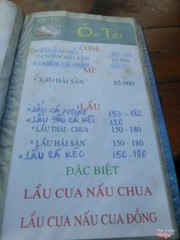 Ốc Tài
CƠM
CHIÊN HẢI SẢN
CHIÊN CÁ MẶN
MÌ
* XÀO HẢI SẢN 65.000
LẨU
* LẨU CÁ 150 - 180
* LẨU ĐẦU CÁ HỒI 120
* LẨU THÁI - CHUA 150 - 180
* LẨU HẢI SẢN 150 - 180
* LẨU CÁ KÈO 150 - 180
ĐẶC BIỆT
LẨU CUA NẤU CHUA
LẨU CUA NẤU CUA ĐỒNG